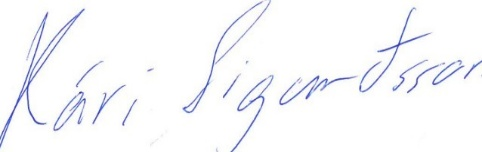 Kári Sigurðsson